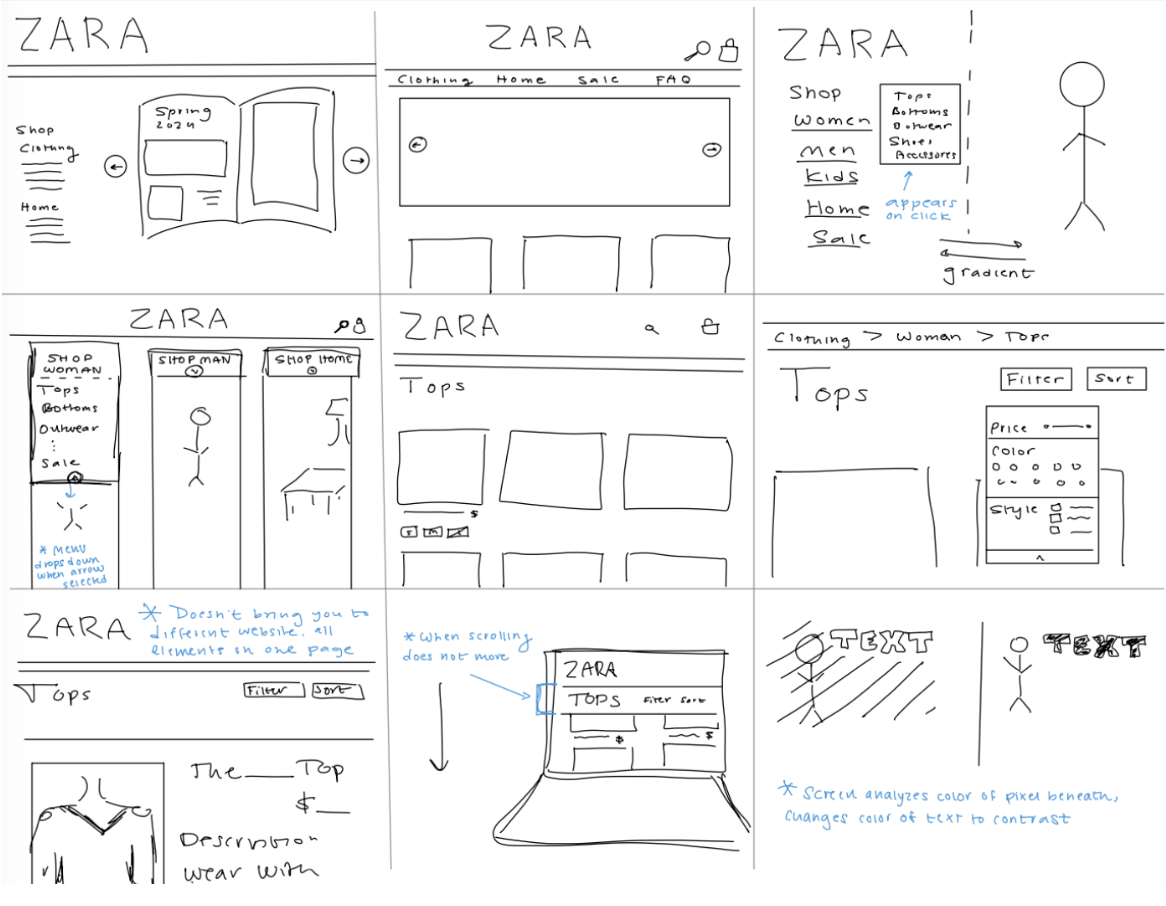 ZARA
Spring
2024
Shop
Clothing
Home
ZARA
Clothing Home Sale FAQ
ZARA
Shop
Women
Men
Kids
Home
Sale
Tops
Bottoms
Outwear
Shoes
Accessores
appears
on click
gradient
ZARA
SHOP
WOMAN
Tops
Bottoms
Outwear
Sale
* Menu
drops down
when arrow
selected
SHOP MAN
SHOP HOME
ZARA
Tops
$
S M
Clothing > Woman > Tops
Tops
Filter Sort
Price
Color
Style
ZARA
* Doesn't bring you to
different website. all
elements on one page
Tops
Filter Sort
The ___ Top
$__
Description
wear with
* When scrolling
does not move
ZARA
TOPS Filter Sort
$ $
TEXT
TEXT
* Screen analyzes color of pixel beneath,
changes color of text to contrast